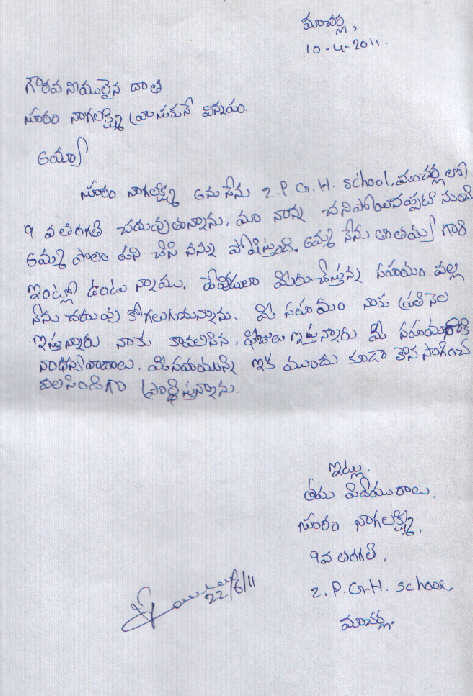 మాచర్ల,
10-4-2011.
గౌరవనీయులైన దాత
సూరం నాగలక్ష్మి వ్రాయునది ఏమనగా.
అయ్యా
సూరం నాగలక్ష్మి అను నేను Z.P.G.H. school, మాచర్లలో
9 వ తరగతి చదువుతున్నాను. మా నాన్న చనిపోయినప్పటి నుండి
అమ్మ పొలం పని చేసి నన్ను పోషిస్తుంది. అమ్మ నేను తాతయ్య గారి
ఇంట్లో ఉంటున్నాము. మీరు చేస్తున్న సహాయం వల్ల
నేను చదువు కోగలుగుచున్నాను. మీ సహాయం నాకు ప్రతి నెల
ఇస్తున్నారు నాకు కావలసిన ఇస్తున్నారు మీ సహాయానికి
ధన్యవాదాలు. మీ సహాయాన్ని ఇక ముందు కూడా కొనసాగించ
వలసిందిగా ప్రార్థిస్తున్నాను.
ఇట్లు.
తమ విధేయురాలు.
సూరం నాగలక్ష్మి,
9వ తరగతి,
Z.P.G.H. school
మాచర్ల.
22/6/11